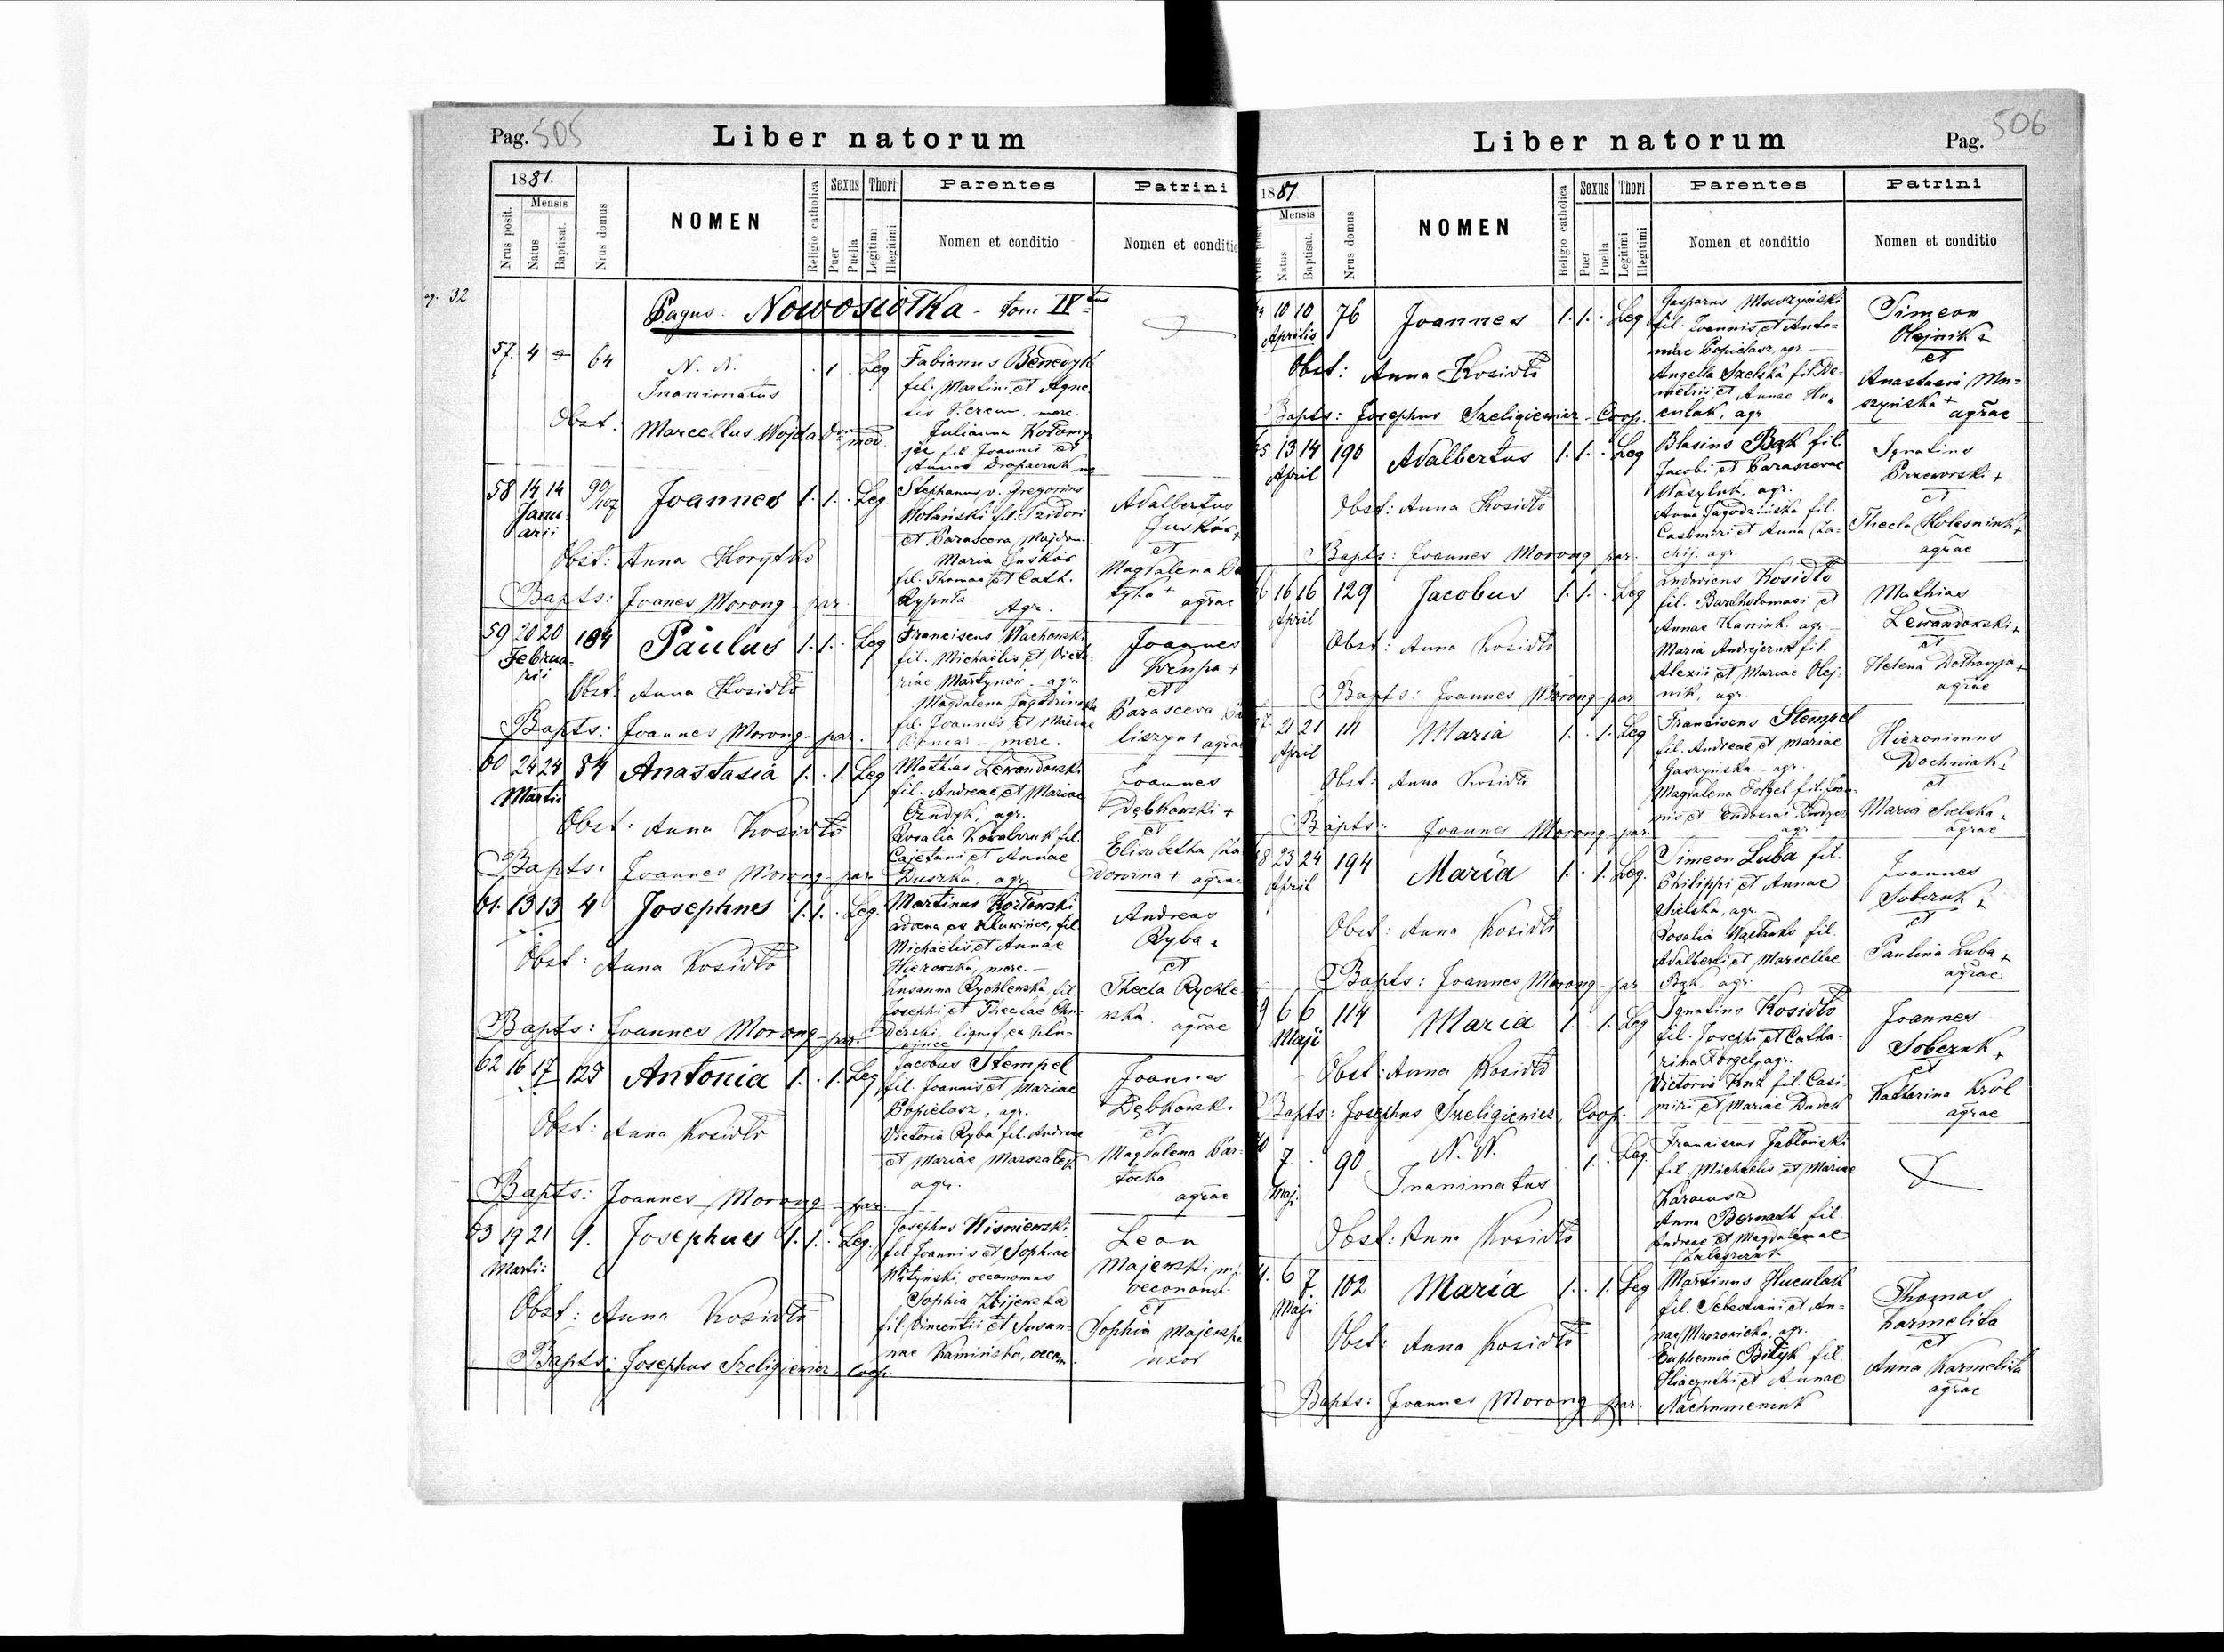 Pag. 505
Liber natorum
1881.
Mensis
Nrus posit.
Natus
Baptisat.
Nrus domus
NOMEN
Religio catholica
Sexus
Puer
Puella
Thori
Legitimi
Illegitimi
Parentes
Nomen et conditio
Patrini
Nomen et conditio
32.
Pagus: Nowosiołka - tom IV tus
57. 4 64 N. N. 1 Leg Fabianus Benedyk
Inanimatus fil. Martini et Agne
tis merc.
Obst: Marcellus Wojda med. Julianna Kołomy
jec fil Joannis et
Annae
58 14 14 90/107 Joannes 1. 1. Leg. Stephanus v. Gregorius Adalbertus
Janu Wolański fil. Izidori Juskow +
arii et Parasceva Majdan et
Obst: Anna Korytko Maria Juskow Magdalena
fil. Thomae et Cath. agrae
Bapts: Joanes Morong par. Rypnta. Agr.
59 20 20 184 Paulus 1. 1. Leg Franciscus Wachowski Joannes
Februa fil. Michaëlis et Victo Krupa +
rii riae Martynow. agr. et
Obst: Anna Kosidło Magdalena Jagodzinska Parasceva
fil. Joannes et Mariae liszyn + agrae
Bapts: Joannes Morong par. merc.
60 24 24 84 Anastasia 1. 1. Leg Mathias Lewandowski Joannes
Martii fil. Andreae et Mariae Dębkowski +
Obst: Anna Kosidło agr. et
Rosalia Kowalczuk fil. Elisabetha
Cajetani et Annae
Bapts: Joannes Morong par. Duszka, agr. agrae
61. 13 13 4 Josephus 1. 1. Leg. Martinus Kozłowski Andreas
advena ex Kluwince, fil. Ryba +
Obst: Anna Kosidło Michaelis et Annae et
merc. Thecla Rychle
Susanna Rychlewska fil. wska agrae
Josephi et Theclae
Bapts: Joannes Morong par. lignif ex Klu
wince
62 16 17 125 Antonia 1. 1. Leg Jacobus Stempel Joannes
fil. Joannis et Mariae Dębkowski
Popielasz, agr. et
Obst: Anna Kosidło Victoria Ryba fil. Andreae Magdalena Bar
et Mariae tocka
agr. agrae
Bapts: Joannes Morong par.
63 19 21 9. Josephus 1. 1. Leg. Josephus Wisniewski Leon
Marti: fil. Joannis et Sophiae Majewski
oeconomus oeconom.
Obst: Anna Kosidło Sophia Zbijewska et
fil. Vincentii et Susan Sophia Majewska
nae Kamińska, oecon. uxor
Bapts: Josephus Szeligiewicz Coop.
Liber natorum
Pag. 506
1881
Mensis
Nrus posit.
Natus
Baptisat.
Nrus domus
NOMEN
Religio catholica
Sexus
Puer
Puella
Thori
Legitimi
Illegitimi
Parentes
Nomen et conditio
Patrini
Nomen et conditio
10 10 76 Joannes 1. 1. Leg Gasparus Muszyński Simeon
Aprilis fil. Joannis et Anto= Olejnik +
niae Popielasz, agr. et
Obst: Anna Kosidło Angella Szelska fil De= Anastasia Mu=
metrii et Annae Hu szyńska +
Bapts: Josephus Szeligiewicz - Coop. culak, agr agrae
13 14 190 Adalbertus 1. 1. Leg Blasius Bąk fil. Ignatius
April Jacobi et Parascevae Przeworski +
Wasyluk, agr. et
Obst: Anna Kosidło Anna Jagodzińska fil. Thecla Kolesnink +
Casimiri et Anna agrae
Bapts: Joannes Morong par. agr.
16 16 129 Jacobus 1. 1. Leg Ludovicus Kosidło Mathias
April fil. Bartholomaei et Lewandowski +
Annae Kaniuk agr et
Obst: Anna Kosidło Maria Andrejczuk fil. Helena
Alexii et Mariae Olej agrae
Bapts: Joannes Morong par nik, agr.
21 21 111 Maria 1. 1. Leg Franciscus Stempel Hieronimus
April fil. Andreae et Mariae Dochniak +
Gaszyńska agr. et
Obst: Anna Kosidło Magdalena Forgel fil. Joan Maria Sielska +
nis et agrae
Bapts: Joannes Morong par. agr.
23 24 194 Maria 1. 1. Leg. Simeon Luba fil. Joannes
April Philippi et Annae Soberuk +
Sielska, agr. et
Obst: Anna Kosidło Rosalia fil. Paulina Luba +
Adalberti et Marcellae agrae
Bapts: Joannes Morong par Bąk, agr.
6 6 114 Maria 1. 1. Leg Ignatius Kosidło Joannes
Maji fil. Josephi et Catha Soberuk +
rina Forgel, agr. et
Obst: Anna Kosidło Victoria fil. Casi Katharina Król
Bapts: Josephus Szeligiewicz, Coop. miri et Mariae Dudek agrae
7. 90 N. N. 1. Leg. Franciscus Jabłoński
Maj. Inanimatus fil. Michaelis et Mariae
Obst: Anna Kosidło Anna fil.
Andreae et Magdalenae
6 7 102 Maria 1. 1. Leg Martinus Huculak Thomas
Maji fil. Sebestiani et An= Karmelita
nae agr. et
Obst: Anna Kosidło Euphemia Bityk fil. Anna Karmelita
Hiacynthi et Annae agrae
Bapts: Joannes Morong par.